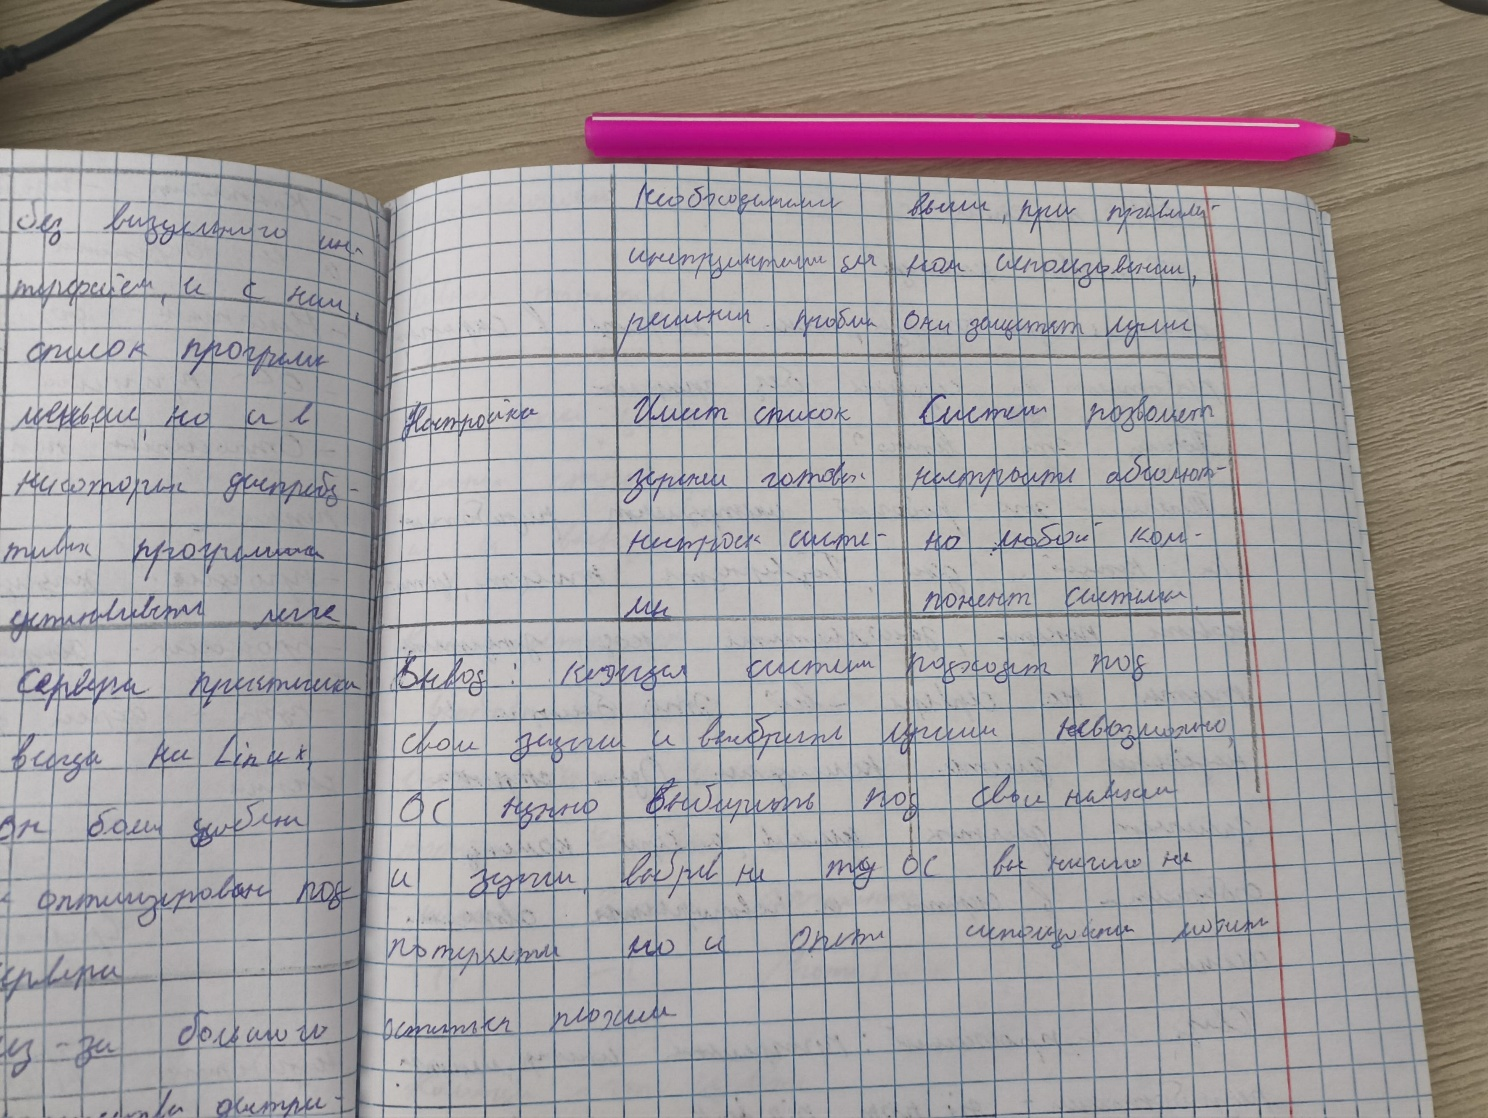 без визуального ин-
терфейсом, и с ним,
список программ
меньше, но и в
некоторых дистрибу-
тивах программы
устанавливать легче
Сервера практически
всегда на Linux,
он более удобен
и оптимизирован под
сервера
из-за большого
дистри-
Необходимыми
инструментами для
решения проблем
выми, при правиль-
ном использовании,
они защитят лучше
Настройка
Имеет список
заранее готовых
настроек систе-
мы
Систем позволяет
настроить абсолют-
но любой ком-
понент системы
Вывод: каждая система подходит под
свои задачи и выбрать лучшую невозможно,
ОС нужно выбирать под свои навыки
и задачи, выбрав не ту ОС вы ничего не
потеряете но и опыт использования может
остаться плохим